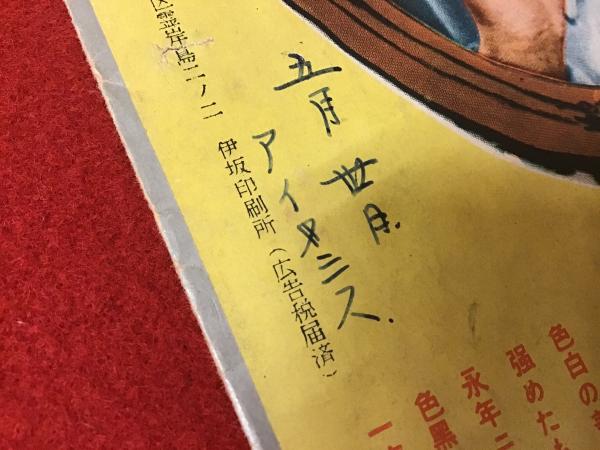 色白の
強めた
永年
色黒
一
五月 卋日.
アイヌミス.
区霊岸島二ノ二 伊坂印刷所(広告税届済)